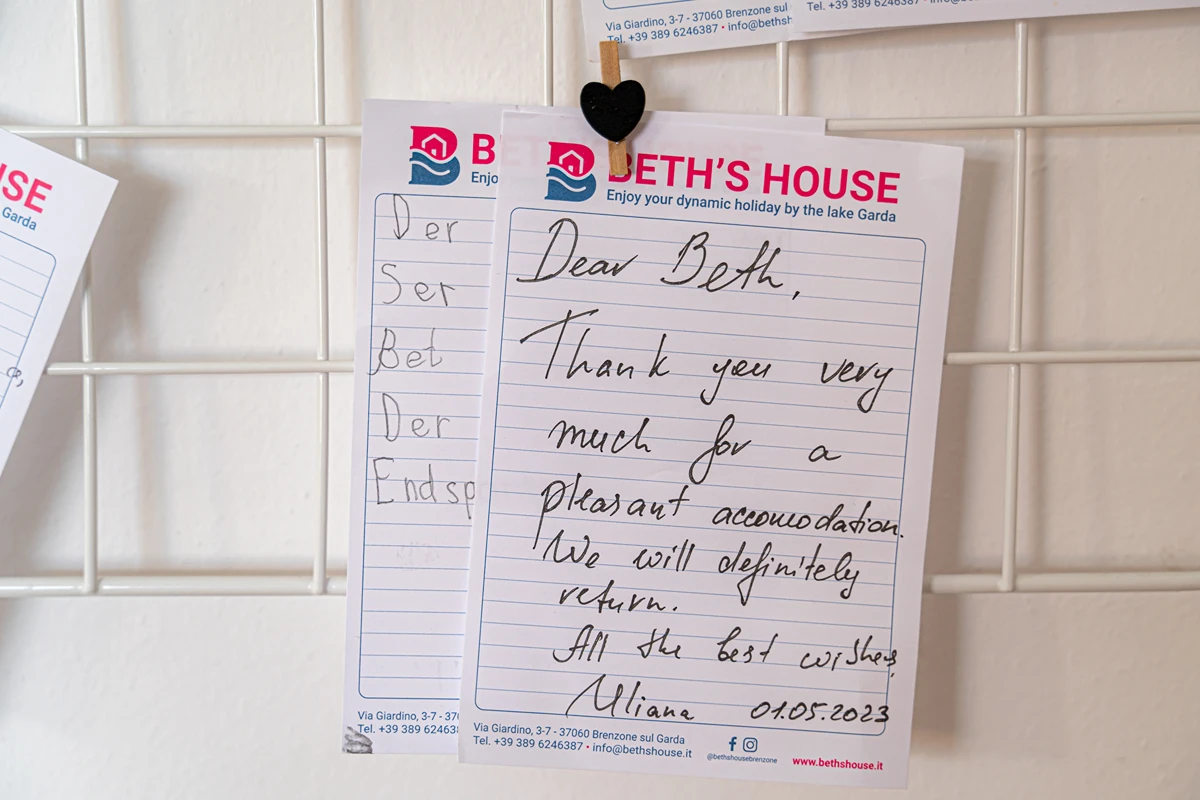 Via Giardino, 3-7 - 37060 Brenzone sul
Tel. +39 389 6246387 • info@beths
Tel. +39 389 6246387
USE
Garda
BETH'S HOUSE
Enjoy your dynamic holiday by the lake Garda
Dear Beth,
Thank you very
much for a
pleasant accomodation.
We will definitely
return.
All the best wishes,
Uliana 01.05.2023
Via Giardino, 3-7 - 37060 Brenzone sul Garda
Tel. +39 389 6246387 • info@bethshouse.it
@bethshousebrenzone
www.bethshouse.it
B
Enjo
Der
Ser
Bet
Der
Endsp
Via Giardino, 3-7 - 37
Tel. +39 389 6246387